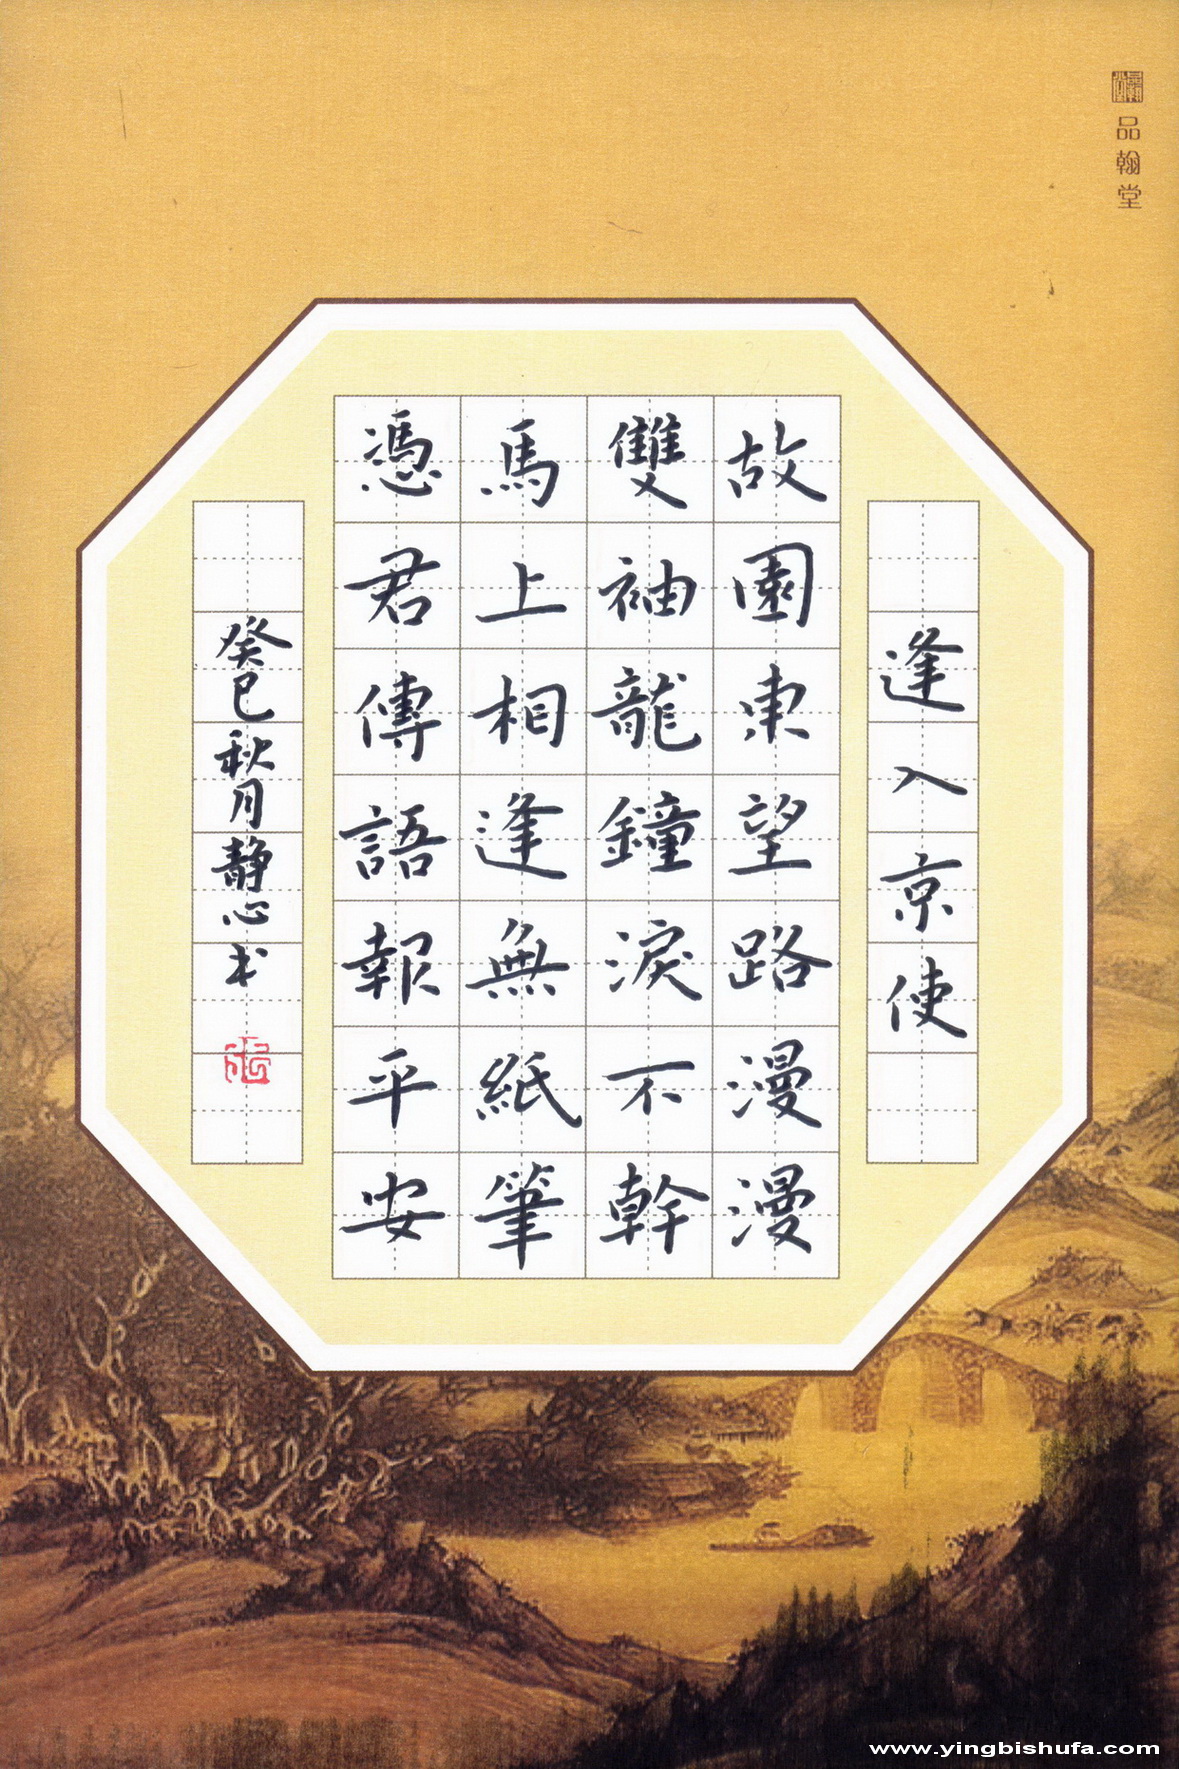 品翰堂
逢入京使
故園東望路漫漫
雙袖龍鐘淚不幹
馬上相逢無紙筆
憑君傳語報平安
癸巳秋月靜心书
www.yingbishufa.com